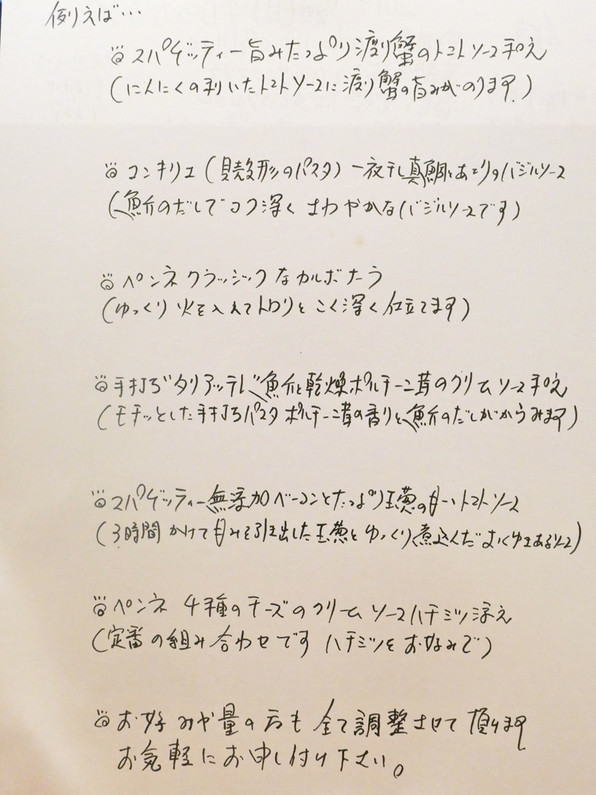 例えば…
スパゲッティー旨みたっぷり渡り蟹のトマトソース和え
(にんにくの利いたトマトソースに渡り蟹の旨みがのります)
コンキリエ(貝殻形のパスタ)一夜干し真鯛とあさりのバジルソース
(魚介のだしでコク深くさわやかなバジルソースです)
ペンネクラッシックなカルボナーラ
(ゆっくり火を入れてトロりとこく深く仕立てます)
手打ちタリアッテレ魚介と乾燥ポルチーニ茸のクリームソース和え
(モチッとした手打ちパスタ ポルチーニ茸の香りと魚介のだしがからみます)
スパゲッティー無添加ベーコンとたっぷり玉葱の甘いトマトソース
(3時間かけて甘みを引き出した玉葱とゆっくり煮込んだ ソース)
ペンネ 4種のチーズのクリームソースハチミツ添え
(定番の組み合わせです ハチミツをお好みで)
お好みや量の方も全て調整させて頂けます
お気軽にお申し付け下さい。